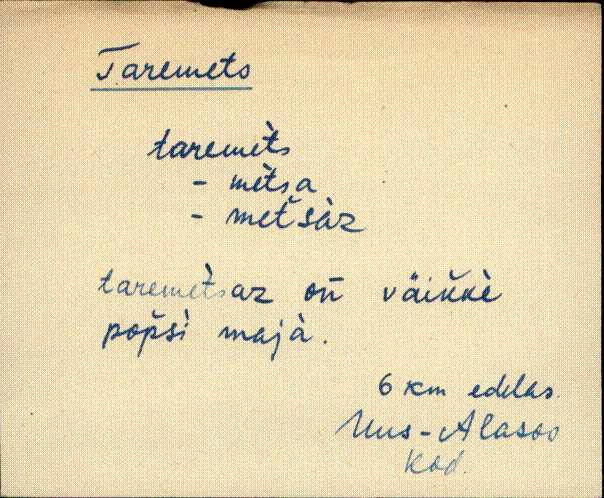 Taremets
taremèts
- mètsa
- metsàz
taremètsaz oñ väikkè
popsì majà.
6 km edelas.
Uus-Alasoo
Kod.